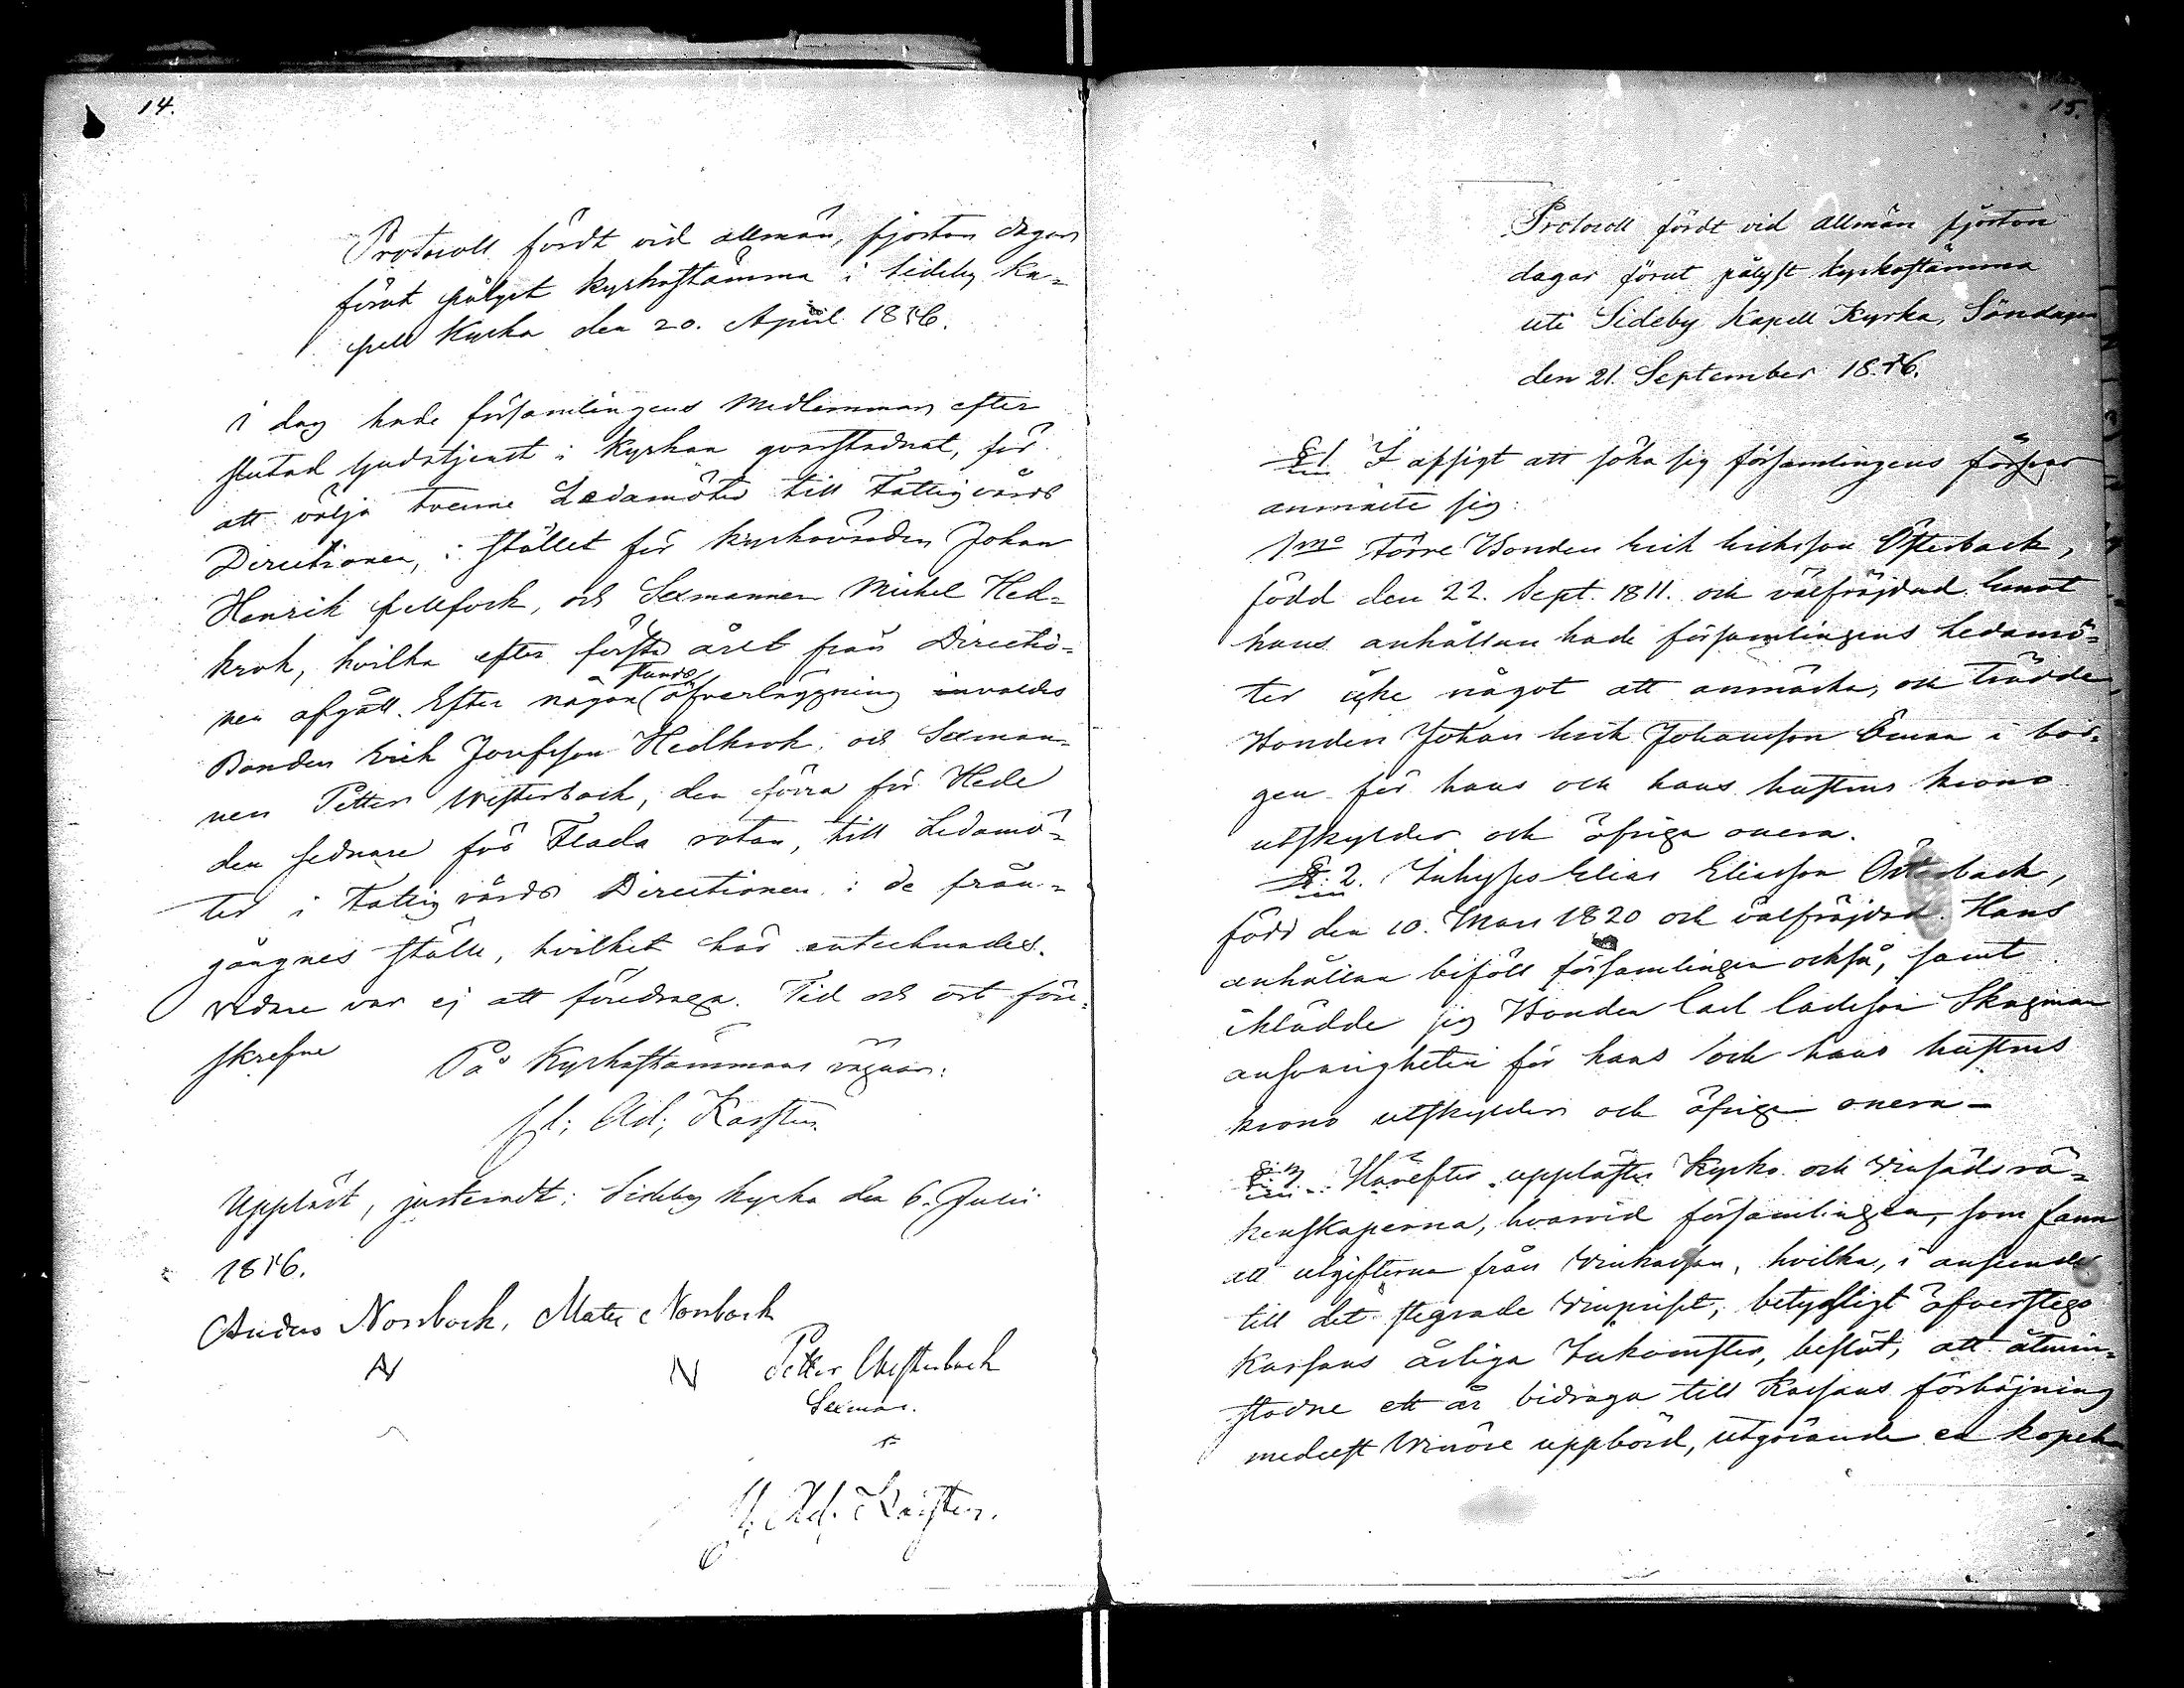 14.
Protocoll fördt vid allmän, fjorton dagar
förut pålyst kyrkostämma i Sideby Ka-
pell Kyrka den 20. April 1856.
I dag hade församlingens Medlemmar efter
slutad Gudstjenst i Kyrkan qvarstadnat, för
att välja tvenne Ledamöter till Fattigvårds
Directionen, i stället för Kyrkovärden Johan
Henrik och Sexmannen Michel Hed-
krok, hvilka efter första året från Directio-
nen afgått. Efter någon stunds öfverläggning invaldes
Bonden Erik Josefsson Hedkrok, och Sexman-
nen Petter Westerback, den förra för Hede
den sednare för Flada rotan, till Ledamö-
ter i Fattigvårds Directionen i de från-
gångnes ställe, hvilket här antecknades.
Vidare var ej att föredraga. Tid och ort före-
skrefne
På Kyrkostämmans vägnar:
Ad; Karsten
Uppläst, justeradt: Sideby kyrka den 6. Julii
1856.
Anders Norrback, Mats Norrback
N N Petter Westerback
Sexman.
Ad. Karsten.
15.
Protocoll fördt vid allmän fjorton
dagar förut pålyst kyrkostämma
uti Sideby Kapell Kyrka, Söndagen
den 21. September 1856.
§ 1 I afsigt att söka sig församlingens försvar
anmälte sig:
1mo Förre Bonden Erik Eriksson Österback,
född den 22. Sept. 1811. och välfräjdad. Emot
hans anhållan hade församlingens Ledamö-
ter icke något att anmärka, och trädde
Bonden Johan Erik Johansson Öman i bor-
gen för hans och hans hustrus krono
utskylder och öfriga onera.
§ 2. Inhyses Elias Eliasson Österback,
född den 10. Mars 1820 och välfräjdad. Hans
anhållan biföll församlingen också, samt
iklädde sig Bonden Carl Carlsson Skagman
ansvarigheten för hans och hans hustrus
krono utskylder och öfriga onera-
§ 3. Härefter upplästes Kyrko och Vinsädsrä-
kenskaperna, hvarvid församlingen, som fann
att utgifterna från Vinkassan, hvilka, i anseende
till det stegrade Vinpriset, betydligt öfverstego
Kassans årliga Inkomster, beslöt, att åtmin-
stodne ett år bidraga till Kassans förhöjning
medelst Vinöre uppbörd, utgörande en kopek